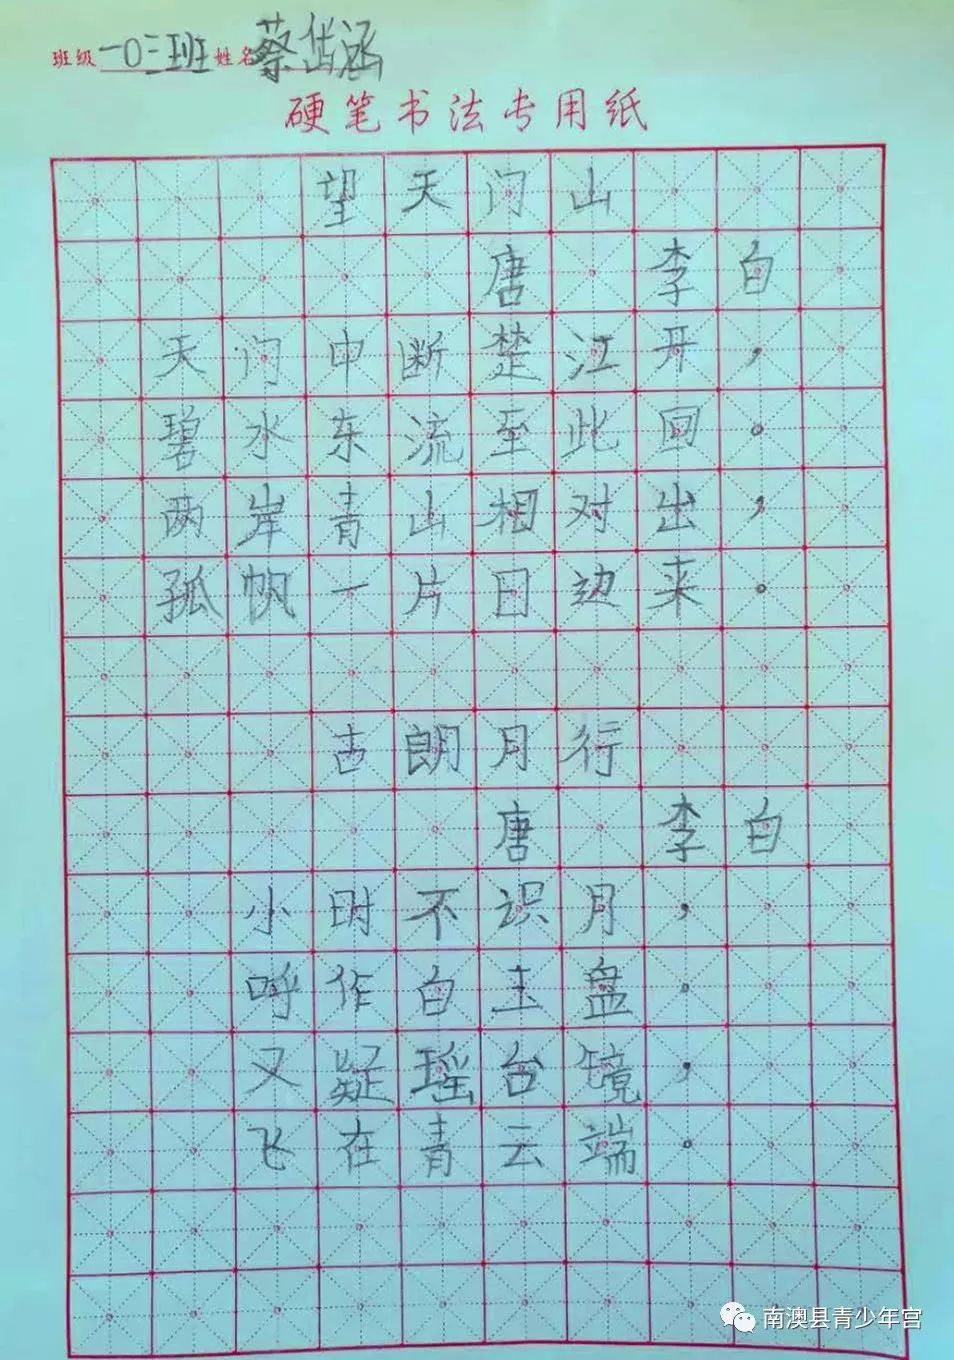 班级 一0三班 姓名 蔡岱涵
硬笔书法专用纸
望天门山
唐 李白
天门中断楚江开，
碧水东流至此回。
两岸青山相对出，
孤帆一片日边来。
古朗月行
唐 李白
小时不识月，
呼作白玉盘。
又疑瑶台镜，
飞在青云端。
南澳县青少年宫